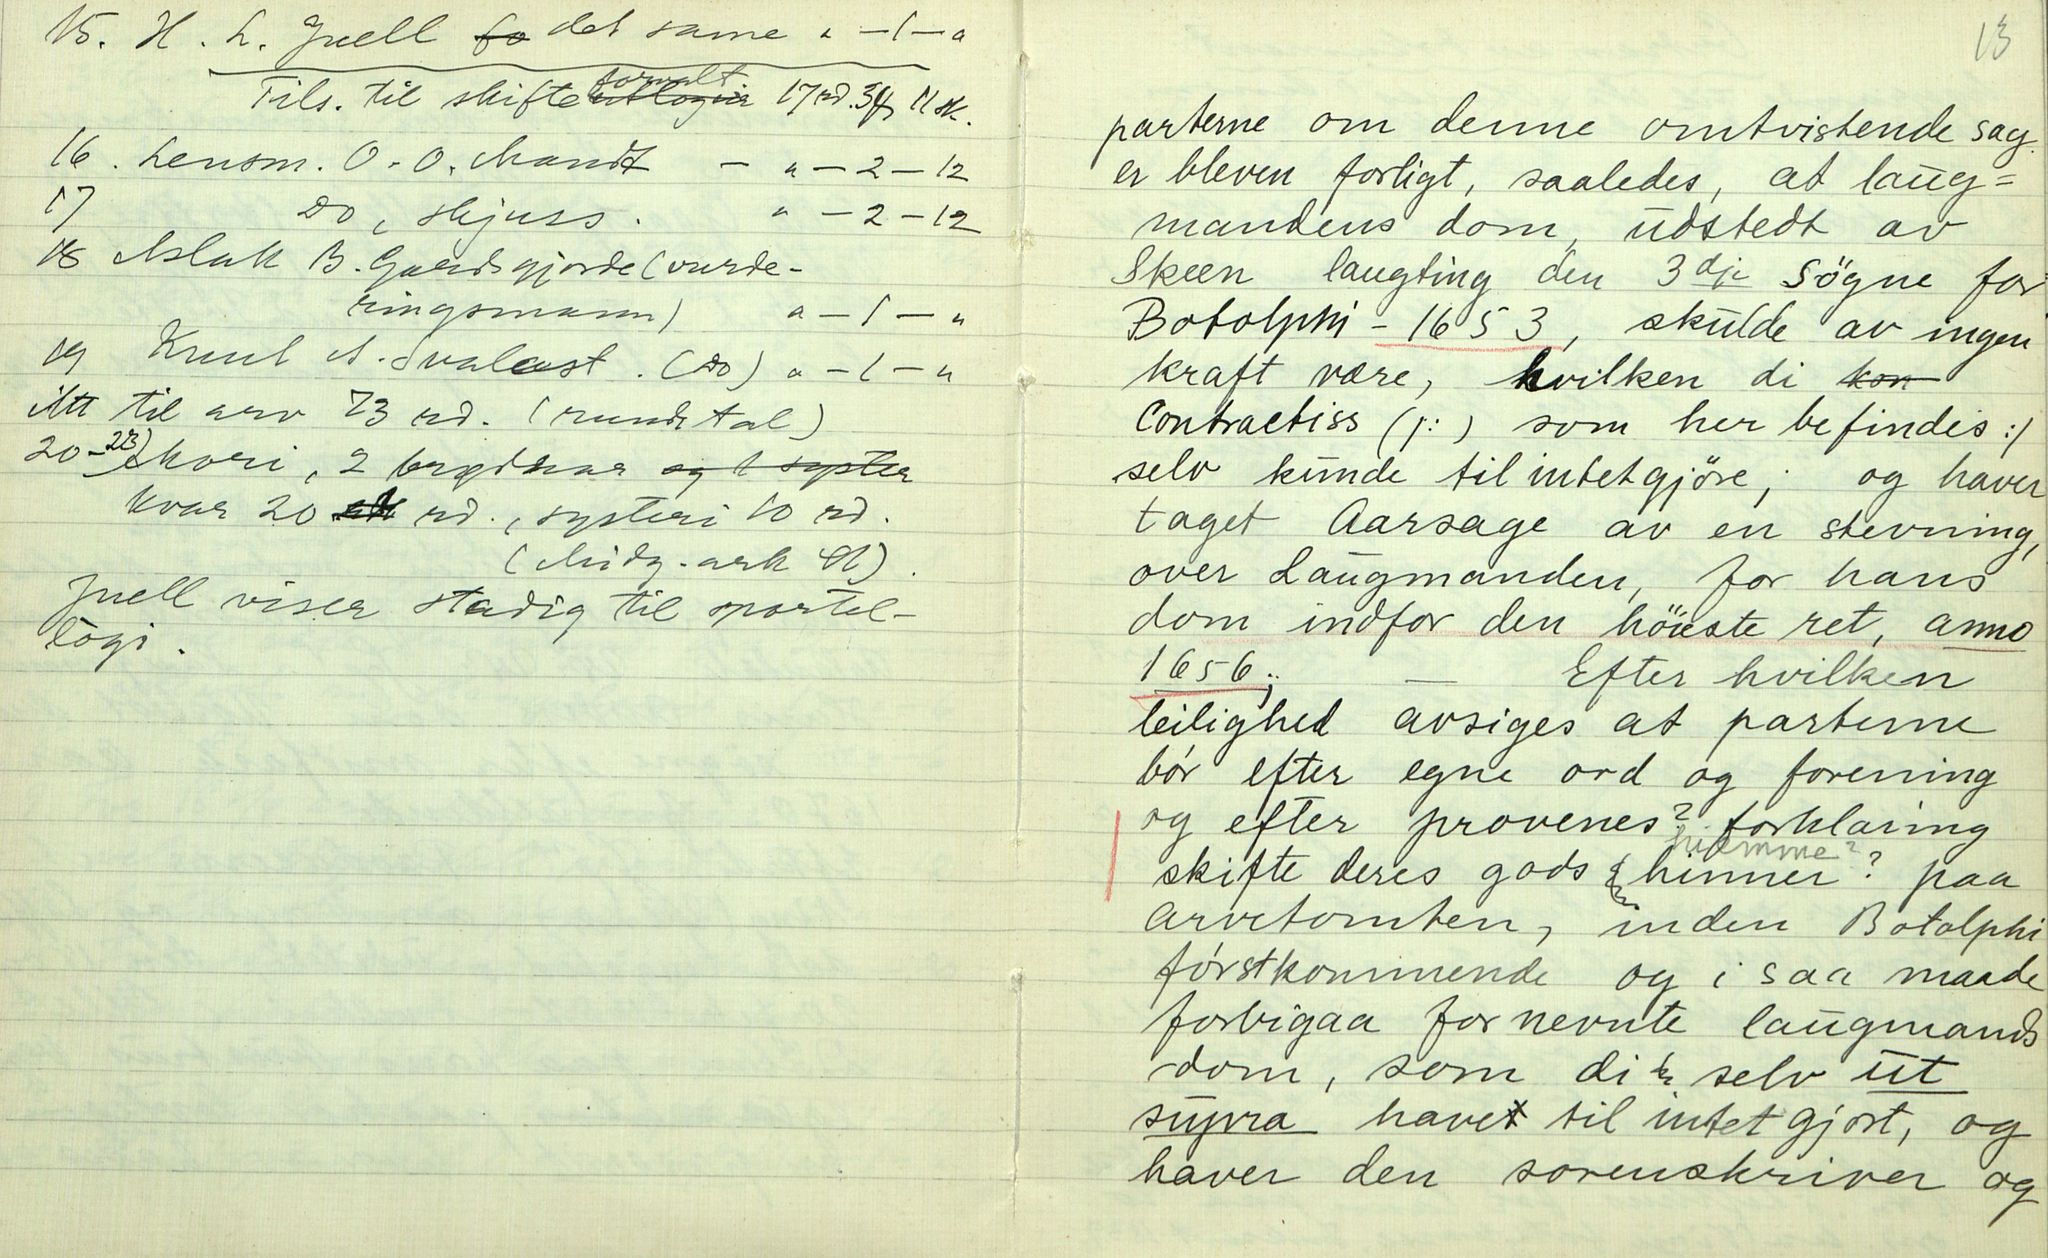 15. H. L. Juell fo det same " – 1 – "
Tils. til skifteforvalt 17 rd. 3 11 sk.
16. Lensm. O. O. Mandt – " – 2 – 12
17 Do, skjuss. " – 2 – 12
18 Aslak B. Gaardsgjorde (vurde-
ringsmann) " – 1 – "
19 Knut A. Svalaast. (Do) " – 1 – "
Att til arv 73 rd. (rundt tal)
20–23) Mori, 2 brydrar og 1 syster
kvar 20 rd., systeri 10 rd.
(Midg. ark A).
Juell viser stadig til sportel-
logi.
13
parterne om denne omtvistende sag
er bleven forligt, saaledes, at laug=
mandens dom, udstedt av
Skeen laugting den 3 dje Sögne for
Botolphi – 1653, skulde av ingen
kraft være, hvilken di kon
Contractiss (j: ) som her befindes :/
selv kunde til intetgjöre; og haver
taget Aarsage av en stevning,
over Laugmanden, for hans
dom indfor den höieste ret, anno
1656; — Efter hvilken
leilighed avsiges at parterne
bör efter egne ord og forening
og efter provenes? forklaring
hiemme?
skifte deres gods hinner? paa
arvetomten, inden Botolphi
förstkommende og i saa maade
forbigaa fornevnte laugmands
dom, som di selv ut
supra havet til intet gjort, og
haver den sorenskriver og